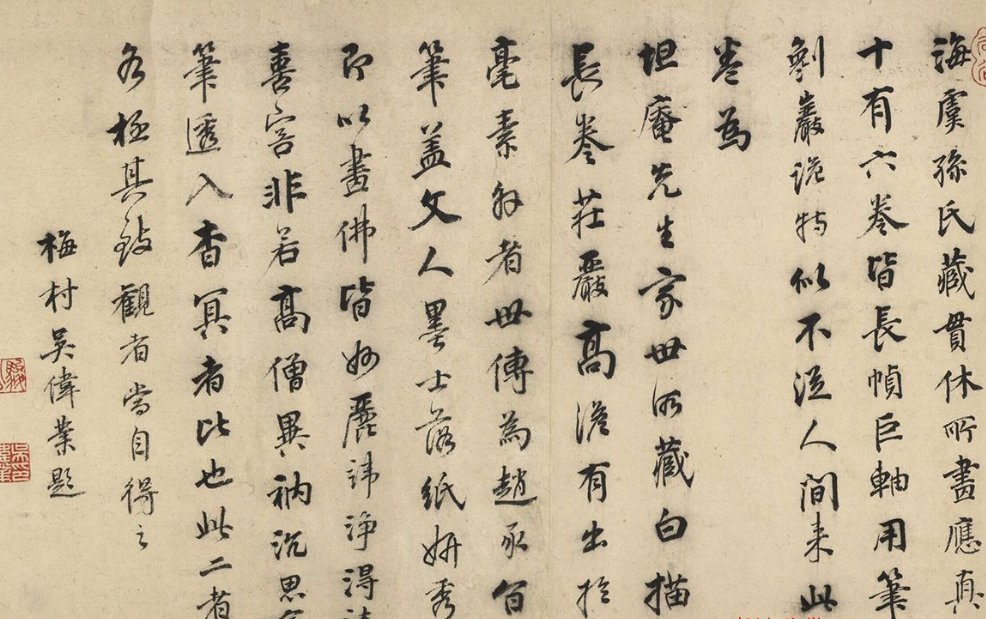 海虞孫氏藏貫休所畫應真
十有六卷皆長幀巨軸用筆
劖巖詭特似不從人間来此
卷為
坦庵先生家世所藏白描
長卷莊嚴高澹有出於
毫素外者世傳為趙承旨
筆盖文人墨士落紙妍秀
即以畫佛皆妙麗諱淨得
喜窓非若髙僧異衲沉思
筆透入杳冥者比也此二者
各極其致觀者當自得之
梅村吳偉業題